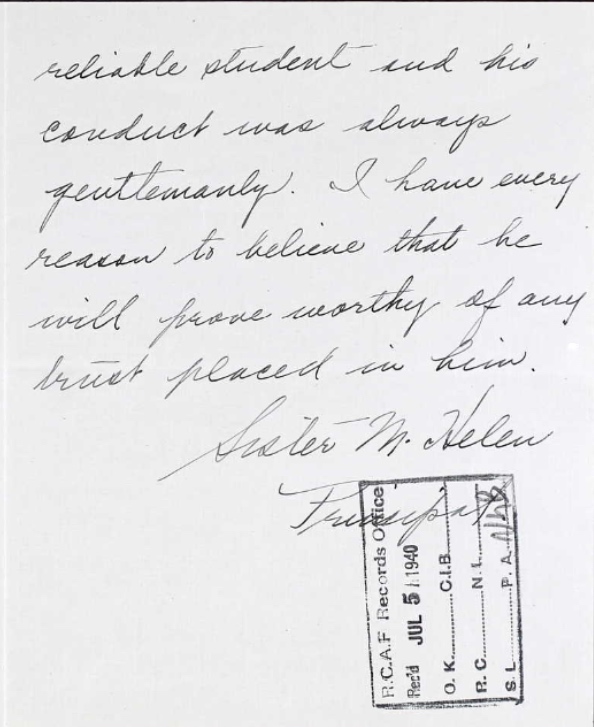 reliable student and his
conduct was always
gentlemanly. I have every
reason to believe that he
will prove worthy of any
trust placed in him.
Sister M. Helen
Principal
R.C.A.F Records Office
Rec'd JUL 5 1940
O. K. C.I.B.
R. C. N. I.
S. L. P. A.